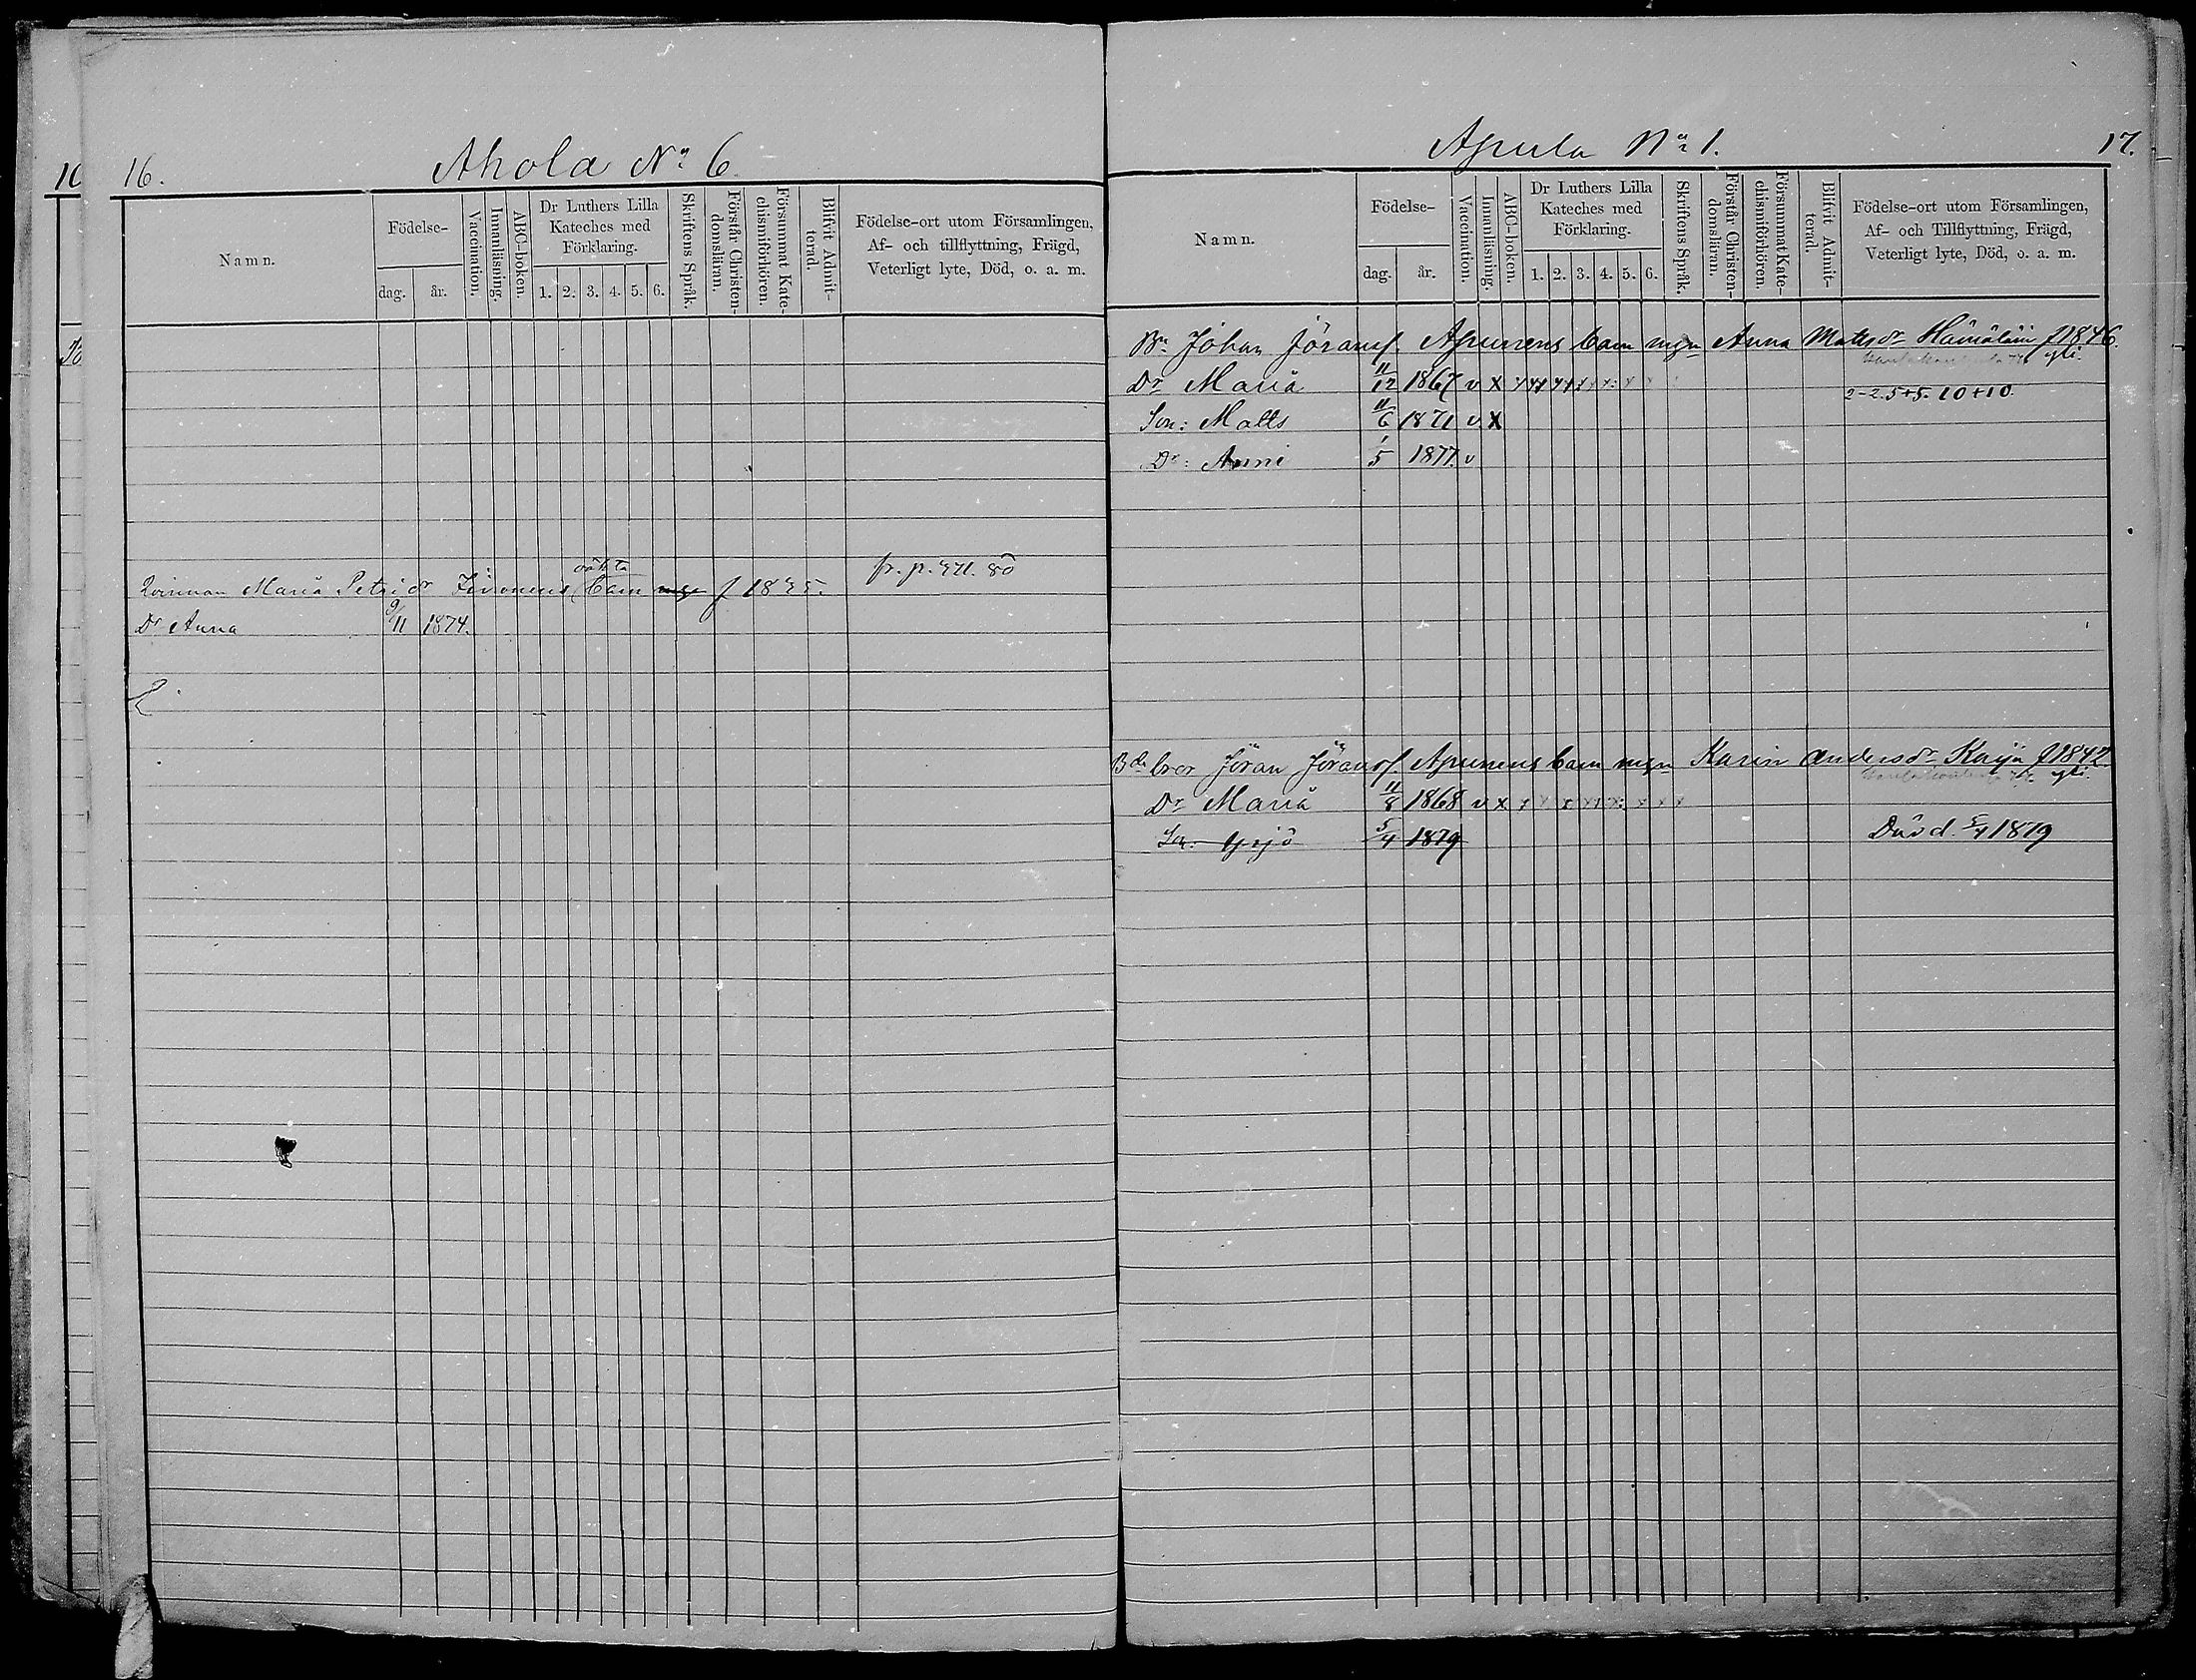 16.
Ahola No 6
Namn.
Födelse-
dag. år.
Vaccination.
Innanläsning.
ABC-boken.
Dr Luthers Lilla Kateches med Förklaring.
1. 2. 3. 4. 5. 6.
Skriftens Språk.
Förstår Christen-domsläran.
Försummat Kate-chismiförhören.
Blifvit Admit-terad.
Födelse-ort utom Församlingen,
Af- och tillflyttning, Frägd,
Veterligt lyte, Död, o. a. m.
oäkta fr. p. 80
Qvinnan Maria Petri dr barn f
Dr Anna 9/11 1874.
17.
Apula No 1.
Namn.
Födelse-
dag. år.
Vaccination.
Innanläsning.
ABC-boken.
Dr Luthers Lilla Kateches med Förklaring.
1. 2. 3. 4. 5. 6.
Skriftens Språk.
Förstår Christen-domsläran.
Försummat Kate-chismiförhören.
Blifvit Admit-terad.
Födelse-ort utom Församlingen,
Af- och Tillflyttning, Frägd,
Veterligt lyte, Död, o. a. m.
Bn Johan Jöranss. Apunens barn m Anna Mattsdr Hämäläin f 1846.
Dr Maria 11/12 1867 v x 2-2. 5+5. 10+10.
Son: Matts 11/6 1871 v x
Dr: Anni 1/5 1877. v
Bds bror Jöran Jöranss. Apunens barn m Karin Andersdr f 1842
Dr Maria 11/8 1868 v x
Son: Yrjö 5/4 1879 Död d. 5/4 1879